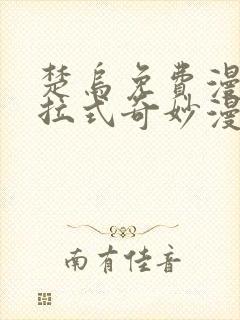 楚乌免费漫
拉式奇妙漫
南有佳音